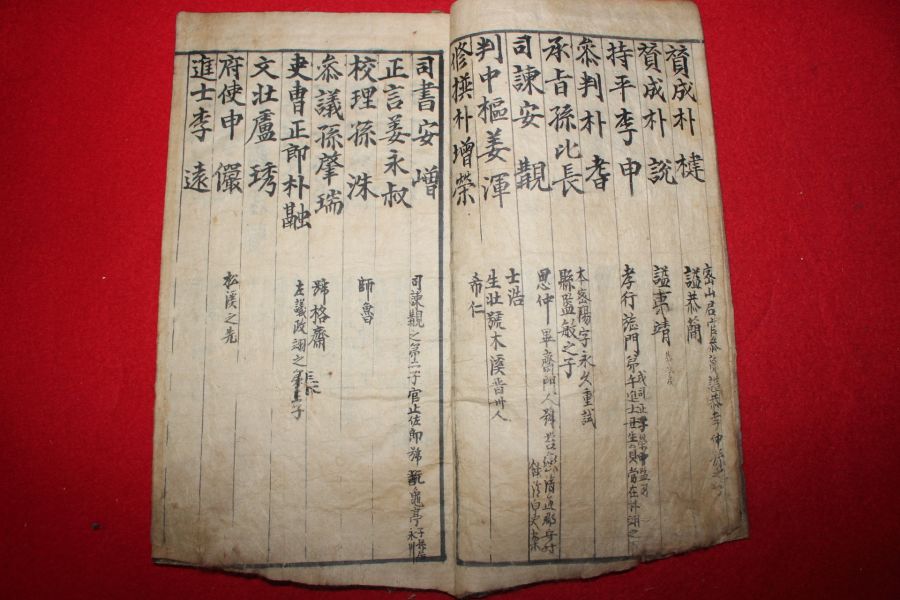 贊成朴 楗
謚恭簡
贊成朴 說
謚夷靖
持平李 申
孝行旌門
參判朴 耆
承旨孫比長
本密陽字永久重試
縣監敏之子
司諫安 覯
思仲
判中樞姜 渾
士浩
生壯號木溪晋州人
修撰朴增榮
希仁
司書安 嶒
司諫覯之第二子官止佐郎號玩龜亭
正言姜永叔
校理孫 洙
師魯
參議孫肇瑞
號格齋
吏曹正郎朴融
左議政翊之第二子
文壯盧 琇
府使申 儼
松溪之先
進士李 遠